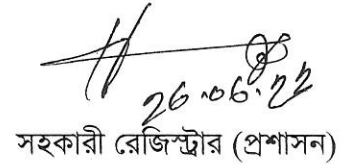 26.06.22
সহকারী রেজিস্ট্রার (প্রশাসন)